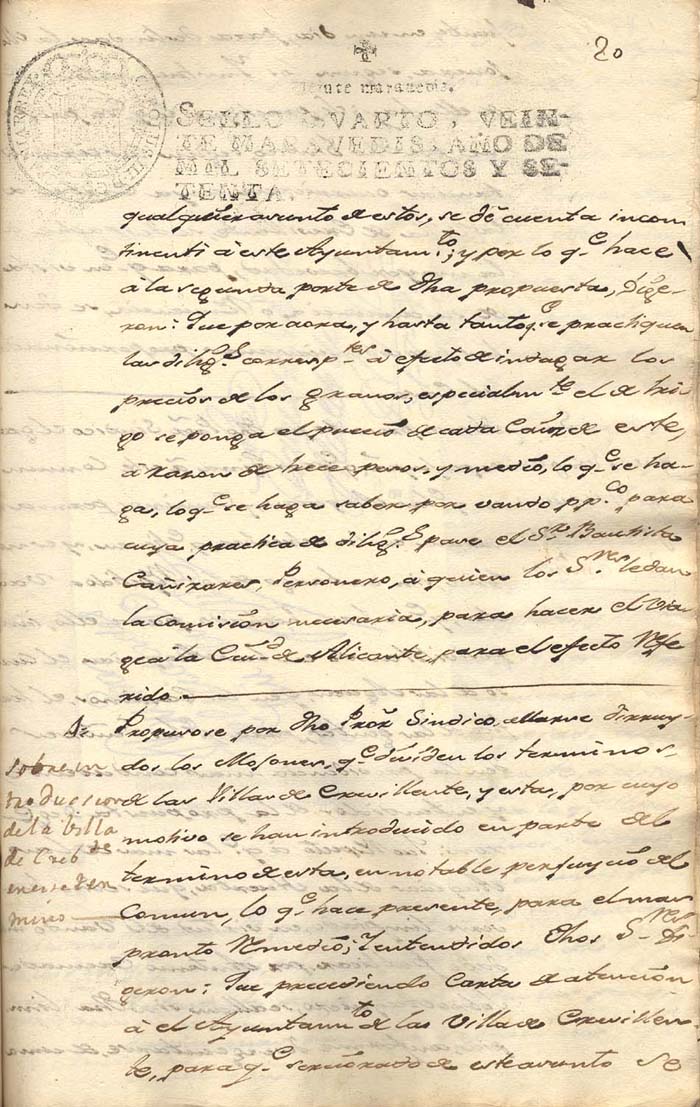 20
Veinte maravedis.
SELLO QVARTO, VEIN-
TE MARAVEDIS, AÑO DE
MIL SETECIENTOS Y SE-
TENTA.
qualquier asunto de estos, se dé cuenta incon
tinenti à este Ayuntam.to; y por lo q.e hace
à la segunda parte de dha propuesta, Dixe-
ron: Que por aora, y hasta tanto q.e se practiquen
las dilig.s corresp.tes à efecto de indagar los
precios de los granos, especialm.te el de tri-
go se ponga el precio de cada Cahiz de este,
à razon de trece pesos, y medio, lo q.e se ha-
ga, lo q.e se haga saber por vando pp.co para
cuya practica de dilig.s pase el S.r Bautista
Cañizares, Personero, à quien los S.res le dan
la Comision necesaria, para hacer el via
ge à la Ciu.d de Alicante, para el efecto Refe
rido.
Propusose por dho Pror Sindico, allarse dirruy-
dos los Mojones, q.e dividen los terminos
de las Villas de Crevillente, y esta, por cuyo
motivo se han introducido en parte del
termino de esta, en notable perjuycio del
Comun, lo q.e hace presente, para el mas
pronto Remedio; Y entendidos dhos S.res Di-
geron: Que precediendo Carta de atencion
à el Ayuntam.to de la Villa de Crevillen-
te, para q.e sercionado de este asunto se
sobre in
troduccion
de la billa
de Creb.te
en ese ter
mino